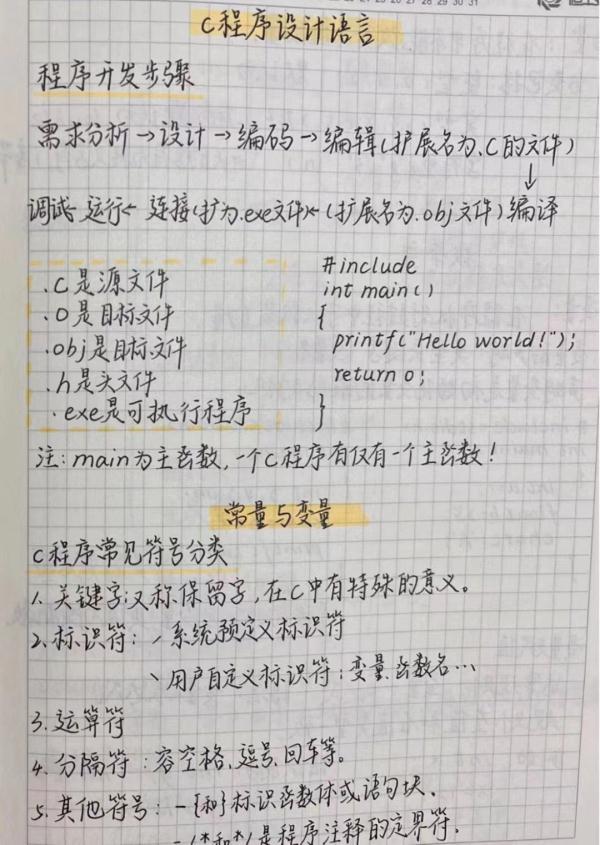 20 21 22 23 24 25 26 27 28 29 30 31
C程序设计语言
程序开发步骤
需求分析→设计→编码→编辑(扩展名为.C的文件)
↓
调试←运行←连接(扩为.exe文件)←(扩展名为.obj文件)编译
.C是源文件
.O是目标文件
.obj是目标文件
.h是头文件
.exe是可执行程序
#include
int main()
{
printf("Hello world!");
return 0;
}
注:main为主函数,一个C程序有仅有一个主函数!
常量与变量
C程序常见符号分类
1. 关键字:又称保留字,在C中有特殊的意义。
2. 标识符: 系统预定义标识符
用户自定义标识符:变量.函数名…
3. 运算符
4. 分隔符:容空格、逗号、回车等。
5. 其他符号:-{和}标识函数体或语句块.
-/*和*/是程序注释的定界符.